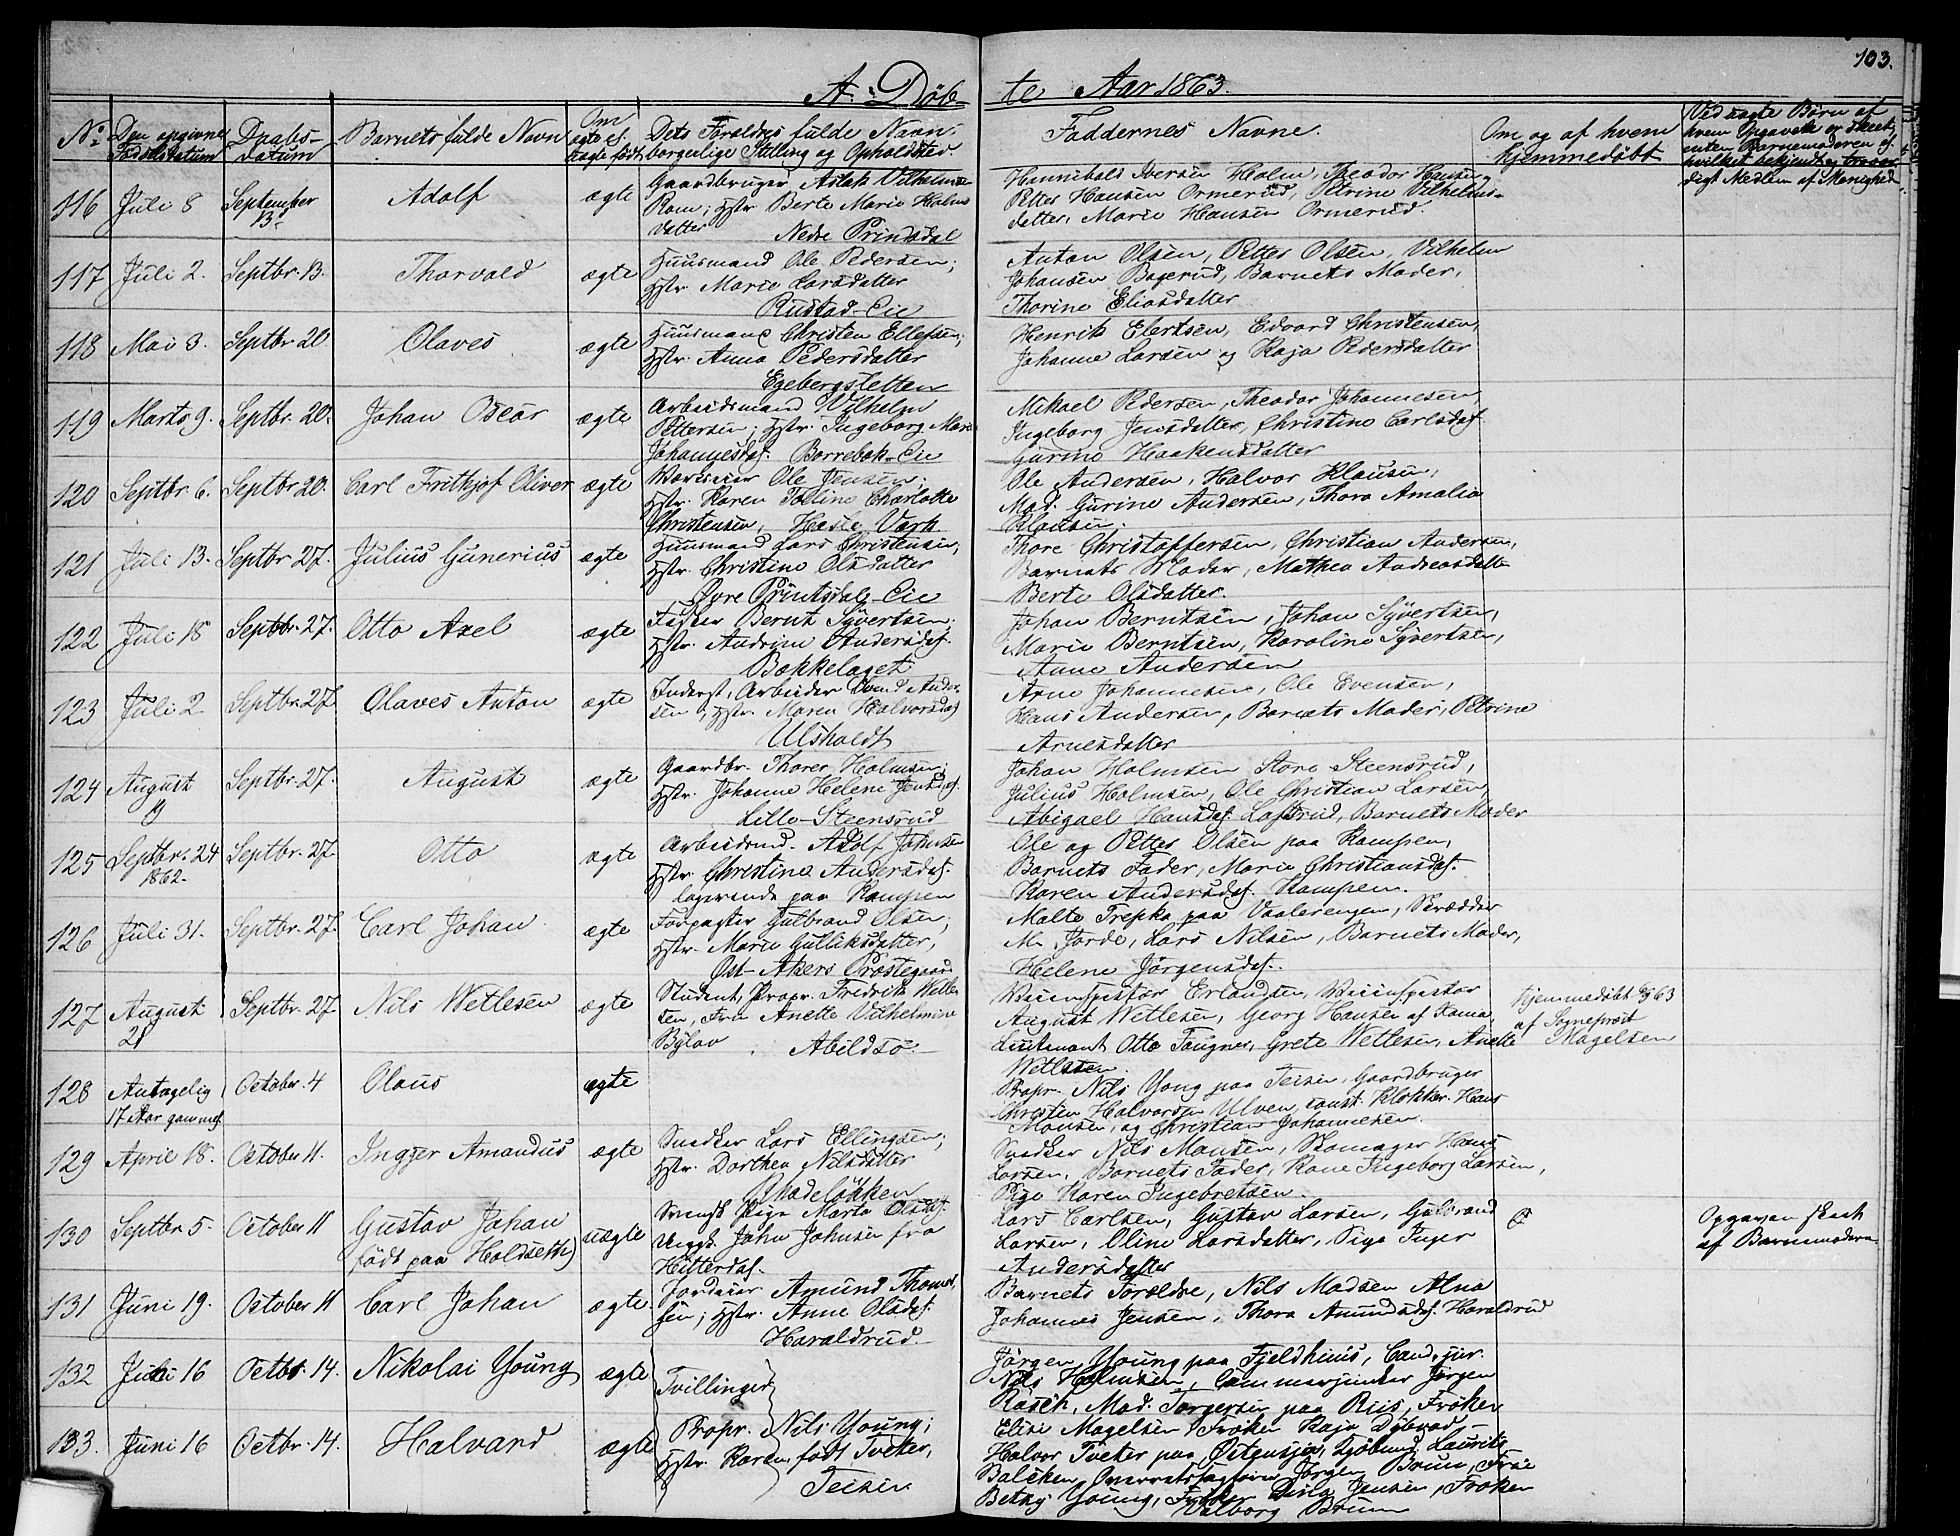 103.
A. Döb te Aar 1863.
No. Den opgivne Fødselsdatum
Daabs-datum
Barnets fulde Navn
Om ægte el. uægte født
Dets Forældres fulde Navn, borgerlige Stilling og Opholdsted.
Faddernes Navne.
Om og af hvem hjemmedøbt
Ved uægte Børn af hvem Opgaven er skeet,
116 Juli 8 September 13. Adolf ægte
Gaardbruger Aslak Vilhelmsen
Rom; Hstr. Berte Marie Holms
datter
Nedre Prindsdal
Hannibals Iversen Holm, Theodor Hansen,
Petter Hansen Ormerud, Petrine Vilhelms-
datter, Marie Hansen Ormerud.
117 Juli 2. Septbr. 13. Thorvald ægte
Huusmand Ole Pedersen;
Hstr. Marie Larsdatter
Rustad-Eie
Anton Olsen, Petter Olsen, Vilhelm
Johansen Bogerud, Barnets Moder,
Thorine Eliasdatter
118 Mai 3. Septbr 20 Olaves ægte
Huusmand Christen Ellefsen;
Hstr. Anna Pedersdatter
Egebergsletten
Henrik Elertsen, Edvard Christensen,
Johanne Larsen og Kaja Pedersdatter
119 Marts 9. Septbr. 20. Johan Oscar ægte
Arbeidsmand Vilhelm
Pettersen; Hstr. Ingeborg Marie
Johannesdat. Borrebæk-Eie
Mikael Pedersen, Theodor Johannesen,
Ingeborg Jensdatter, Christine Carlsdat.
Gurine Haakensdatter
120 Septbr. 6. Septbr 20. Carl Frithjof Oliver ægte
Værseier Ole Jensen;
Hstr. Karen Toline Charlotte
Christensen, Hasle Værk
Ole Andersen, Halvor Klausen,
Mad. Gurine Andersen, Thora Amalia
Klausen.
121 Juli 13. Septbr 27. Julius Gunerius ægte
Huusmand Lars Christensen,
Hstr. Christine Olsdatter
Øvre Printsdal-Eie
Thore Christoffersen, Christian Andersen,
Barnets Moder, Mathea Andreasdatte
Berte Olsdatter.
122 Juli 18 Septbr. 27. Otto Axel ægte
Fisker Bernt Syvertsen;
Hstr. Andrine Andersdat.
Bækkelaget
Johan Berntsen, Johan Syvertsen,
Marie Berntsen, Karoline Syvertsen,
Anne Andersen
123 Juli 2 Septbr. 27 Olaves Anton ægte
Inderst, Arbeider Svend Ander-
sen, Hstr. Maren Halvorsdat.
Ulsholdt
Arne Johannesen, Ole Evensen,
Hans Andersen, Barnets Moder, Petrine
Arnesdatter
124 August Septbr. 27. August ægte
Gaardbr. Thorer Holmsen;
Hstr. Johanne Helene Jensdat.
Lille-Steensrud
Johan Holmsen Store Steensrud,
Julius Holmsen, Ole Christian Larsen,
Abigael Hansdat. Lofsrud, Barnets Moder
125 Septbr. 24 1862. Septbr. 27 Otto ægte
Arbeidsmd. Adolf Johnsen
Hstr. Christine Andersdat.
logerende paa Kampen
Ole og Petter Olsen paa Kampen,
Barnets Fader, Marie Christiansdat.
Karen Andersdat. Kampen.
126 Juli 31. Septbr. 27. Carl Johan ægte
Forpagter Gulbrand Olsen;
Hstr. Marie Gulliksdatter,
Øst-Akers Præstegaard
Malte Trepka paa Vaalerengen, Skrædder
M. Jorde, Lars Nilsen, Barnets Moder,
Helene Jörgensdat.
127 August 21 Septbr. 27. Nils Wetlesen ægte
Student, Propr. Fredrik Wetle-
sen, Fru Anette Vilhelmine
Bylov
Abildsø.
Veiinspektør Erlandsen, Veiinspektør
August Wetlesen, Georg Hansen af Fama
Lieutenant Otto Taugner, Grete Wetlesen, Anette
Wetlesen.
Hjemmedöbt 63
af Sogneprest
Magelsen
128 Antagelig 17 Aar gammel. October 4 Olaus ægte
Propr. Nils Yong paa Teisen, Gaardbruger
Christen Halvorsen Ulven, const. Klokker Hans
Monsen, og Christian Johannesen.
129 April 18. October 11. Ingjer Amandus ægte
Snedker Lars Ellingsen;
Hstr. Dorthea Nilsdatter
Qvadeløkken
Snedker Nils Monsen, Skomager Hans
Larsen, Barnets Fader, Kone Ingeborg Larsen,
Pige Karen Ingebretsen.
130 Septbr 5. October 11 Gustav Johan
født paa Holdseth) uægte
Svensk Pige Marte Olsdat.
Ungk. John Johnsen fra
Hitterdal.
Lars Carlsen, Gustav Larsen, Gulbrand
Larsen, Oline Larsdatter, Pige Inger
Andersdatter
Opgaven skeet
af Barnemoderen
131 Juni 19. October 11 Carl Johan ægte.
Jordeier Amund Thomas-
sen; Hstr. Anne Olsdat.
Haraldrud.
Barnets Forældre, Nils Madsen Alna
Johannes Jensen, Thora Amundsdat. Haraldrud
132 Juni 16 Octbr. 14. Nikolai Young ægte
Tvillinger
Jörgen Young paa Fjeldhuus, Cand. jur.
Nils Holmsen, Cammerjunker Jørgen
Rasch, Mad. Torgersen paa Riis, Frøken
Elise Magelsen, Frøken Kaja Dybvad,
133. Juni 16 Octbr. 14. Halvard ægte
Propr. Nils Young;
Hstr. Karen, født Tveter,
Teisen
Halvor Tveter paa Østensjø, Laurits
Balchen, Overretssagfører Jörgen Bruun, Frue
Betsy Young, Frøken Dina Jensen, Frøken
Valborg Bruun